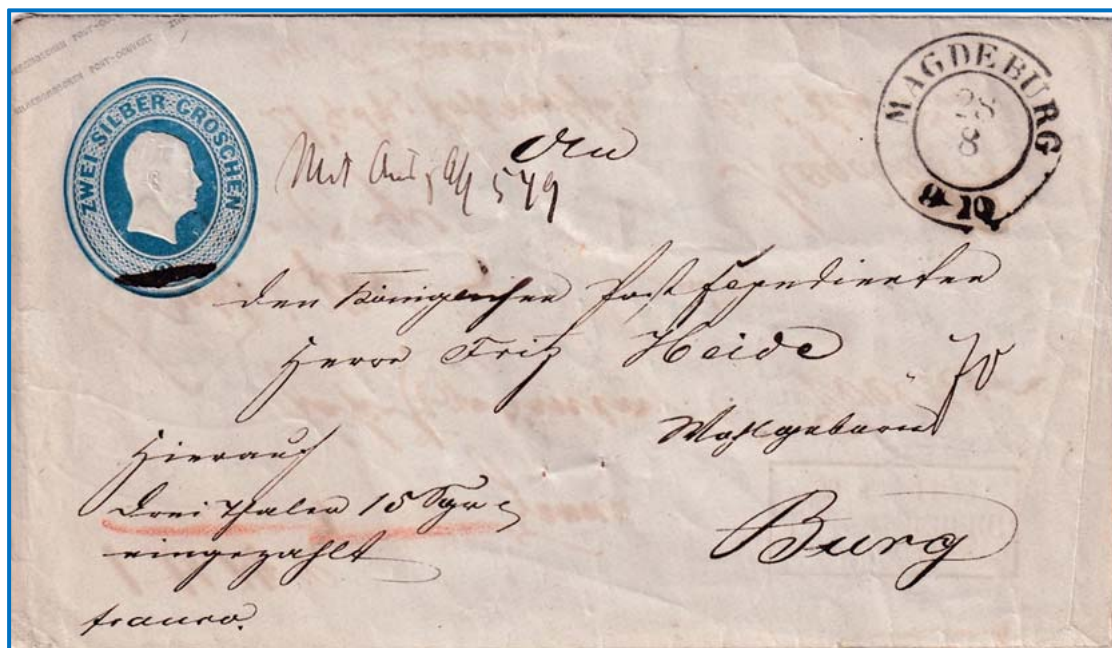 ZWEI SILBER GROSCHEN
MAGDEBURG
28
8
9-10
Mit Ausz. 579
An
den Königlichen Post Expedienten
Herrn Fritz Heide
70
Wohlgeboren
Hierauf
Drei Thaler 15 Sgr
eingezahlt
Burg
franco.